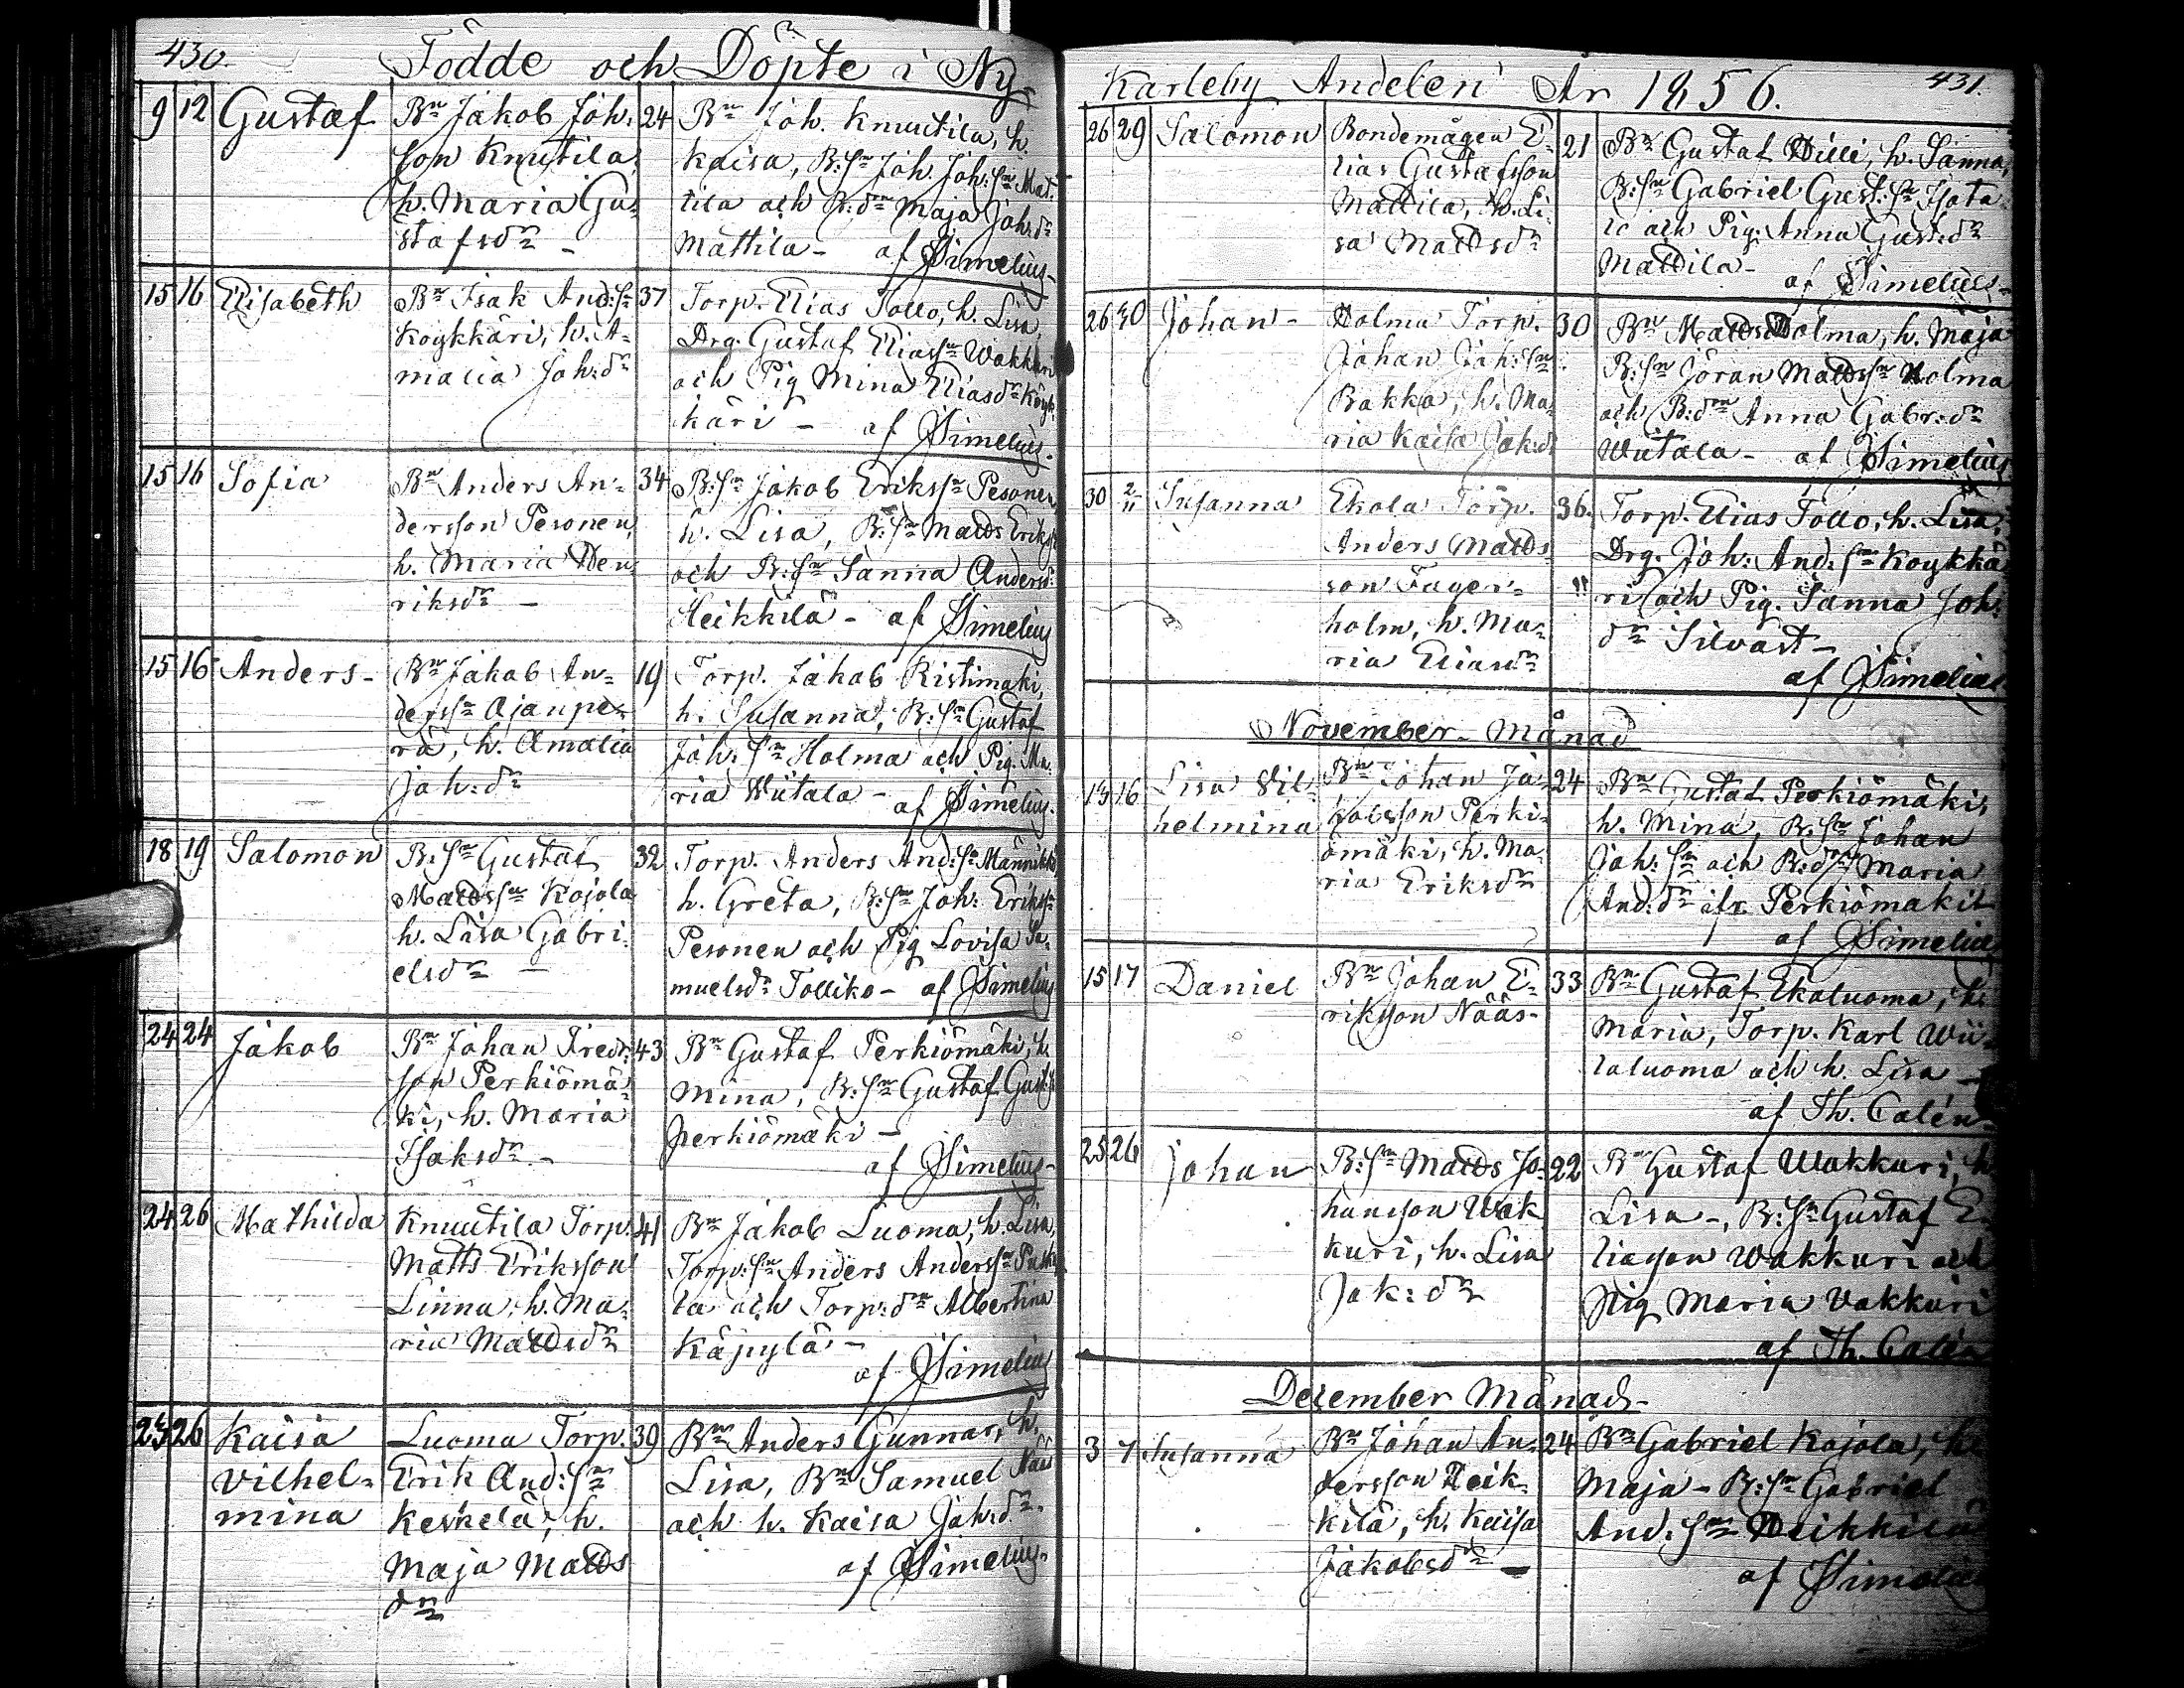 430.
Födde och Döpte i Ny-
9 12 Gustaf Bn Jakob Joh:
son Knutila,
h. Maria Gu-
stafsdr -
24 Bn Joh. Knuutila, h.
Kaisa, B:Sn Joh. Joh:Sn Mat-
tila och B:dr Maja Joh:dr
Mattila - af Simelius -
15 16 Elisabeth Bn Isak And:Sn
Koykkäri, h. A-
malia Joh:dr
37 Torp. Elias Tollo, h. Lisa,
Drg. Gustaf Eliassn Wakkuri
och Pig Mina Eliasdr Köyk-
käri - af Simelius.
15 16 Sofia Bn Anders An-
dersson Pesonen,
h. Maria Hen-
riksdr -
34 B:Sn Jakob Erikssn Pesonen
h. Lisa, B:Sn Matts Erikssn
och B:Sn Sanna Andersd:
Heikkilä - af Simelius
15 16 Anders - Bn Jakob An-
derssn Ajanpe-
rä, h. Amalia
Joh:dr
19 Torp. Jakob Ristimäki,
h. Susanna, B:Sn Gustaf
Joh:Sn Holma och Pig. Ma-
ria Wiitala - af Simelius.
18 19 Salomon B:Sn Gustaf
Mattssn Kojola
h. Lisa Gabri-
elsdr -
32 Torp. Anders And:Sn Männikkö
h. Greta, B:Sn Joh: Erikssn
Pesonen och Pig Lovisa Sa-
muelsdr Tolliko - af Simelius
24 24 Jakob Bn Johan Fredr:
son Perkiömä-
ki, h. Maria
Isaksdr -
43 Bn Gustaf Perkiömäki, h.
Mina, B:Sn Gustaf Gust:Sn
Perkiömäki -
af Simelius -
24 26 Mathilda Knuutila Torp.
Matts Eriksson
Linna, h. Ma-
ria Mattsdr
41 Bn Jakob Luoma, h. Lisa,
Torp:Sn Anders Anderssn
la och Torp:dr Albertina
Käpylä -
af Simelius
25 26 Kaisa
Vilhel-
mina
Luoma Torp.
Erik And:Sn
Keskelä, h.
Maja Matts
dr
39 Bn Anders Gunnar, h.
Lisa, Bn Samuel Nääs
och h. Kaisa Joh:dr.
af Simelius.
Karleby Andelen År 1856.
431.
26 29 Salomon Bondemågen E-
lias Gustafsson
Mattila, h. Li-
sa Mattsdr
21 Bn Gustaf Hilli, h. Sanna,
B:Sn Gabriel Gust:Sn Isota-
lo och Pig: Anna Gust:dr
Mattila -
af Simelius -
26 30 Johan - Holma Torp.
Johan Joh:Sn
Bakka, h. Ma-
ria Kaisa Jak:dr
30 Bn Matts Holma, h. Maja
B:Sn Jöran Mattssn Holma
och B:dr Anna Gabr:dr
Wiitala - af Simelius
30 2/11 Susanna Ekola Torp.
Anders Matts
son Fager-
holm, h. Ma-
ria Eliasdr
36. Torp. Elias Tollo, h. Lisa,
Drg. Joh: And:Sn Koykkä
ri och Pig. Sanna Joh:
dr Silvast -
af Simelius
November - Månad
15 16 Lisa Vil-
helmina
Bn Johan Ja-
kobsson Perki-
ömäki, h. Ma-
ria Eriksdr
24 Bn Gustaf Perkiömäki,
h. Mina, B:Sn Johan
Joh:Sn och B:dr Maria
And:dr ifr. Perkiömäki
af Simelius
15 17 Daniel Bn Johan E-
riksson Nääs -
33 Bn Gustaf Ekaluoma, h.
Maria, Torp. Karl Wii-
taluoma och h. Lisa -
af Th. Calén -
25 26 Johan B:Sn Matts Jo-
hansson Wak
kuri, h. Lisa
Jak:dr
22 Bn Gustaf Wakkuri, h.
Lisa -, B:Sn Gustaf E-
liasson Wakkuri och
Pig Maria Vakkuri
af Th. Calén
December Månad -
3 7 Susanna Bn Johan An-
dersson Heik-
kilä, h. Kaisa
Jakobsdr -
24 Bn Gabriel Kojola, h.
Maja - B:Sn Gabriel
And:Sn Heikkilä
af Simelius